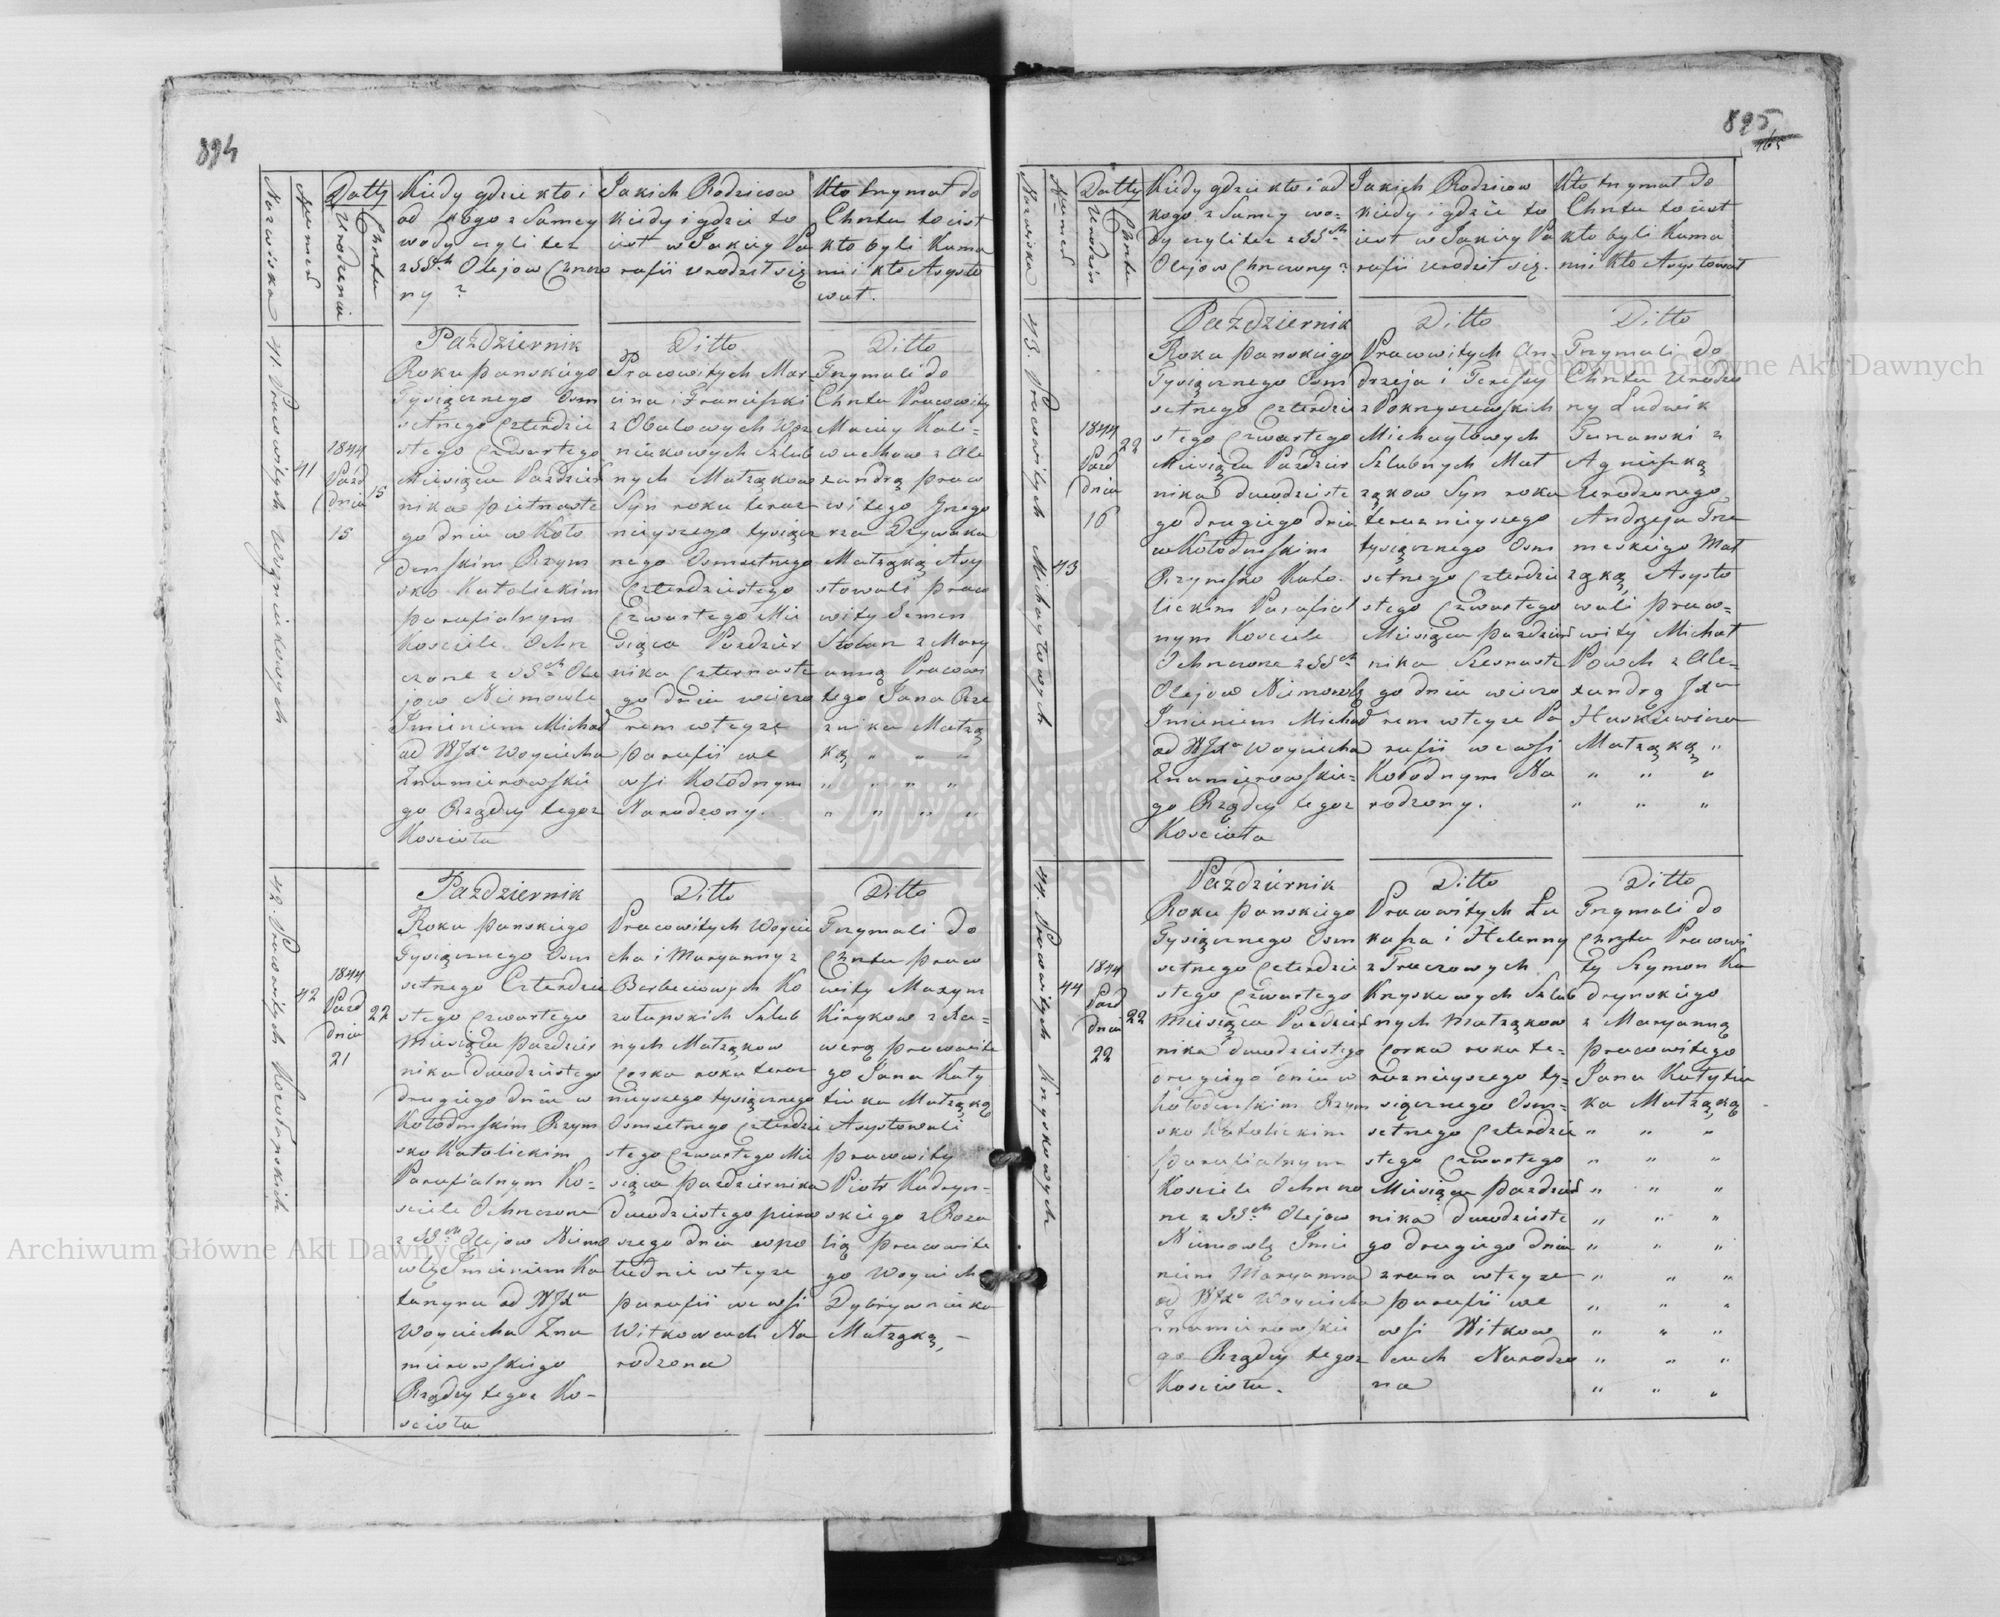 894
Nazwiska
Numer
Datty
Urodzenia
Chrztu
Kiedy gdzie kto i
od kogo z Samey
wody czyli tez
z SSch Olejow Chrzczo
ny?
Jakich Rodzicow
kiedy i gdzie to
iest w Jakiey Pa
rafii Urodził się
Kto trzymał do
Chrztu to iest
kto byli Kuma
mi i kto Asysto
wał.
41. Pracowitych Wozniukowych
41
1844
Pazd
dnia
15
15
Październik
Roku Pańskiego
Tysiącznego Osm
setnego Czterdzie
stego Czwartego
Miesiąca Pazdzier
nika pietnaste
go dnia w Koło
denskim Rzym
sko Katolickim
parafialnym
Kosciele Ochrz
czone z SSch Ole
jow Niemowle
Imieniem Michał
od WJXa Woyciecha
Znamierowskie
go Rządcy tegoz
Kosciola
Ditto
Pracowitych Mar
cina i Franciszki
z Obalowych Woz
niukowych Szlub
nych Małząkow
Syn roku teraz
nieyszego tysiącz
nego Osmsetnego
Czterdziestego
Czwartego Mie
siąca Pazdzier
nika Czternaste
go dnia wieczo
rem w teyze
parafii we
wsi Kołodnym
Narodzony.
Ditto
Trzymali do
Chrztu Pracowity
Maciey Kali=
wuchow z Ale
xandrą praco
witego Grzego
rza Dzywaka
Małząką Asy
stowali praco
wity Semen
Szoban z Mary
anną Pracowi
tego Jana Rze
znika Małzą
ką " " "
" " " "
" " " "
42. Pracowitych Kozołupskich
42
1844
Pazd
dnia
21
22
Październik
Roku pańskiego
Tysiącznego Osm
setnego Czterdzie
stego Czwartego
Miesiąca pazdzier
nika dwudziestego
drugiego dnia w
Kołodenskim Rzym
sko Katolickim
Parafialnym Ko=
sciele Ochrzczone
z SSch Olejow Niemo
wlę Imieniem Ka
tarzyna od WJXa
Woyciecha Zna
mierowskiego
Rządcy tegoz Ko-
sciola
Ditto
Pracowitych Woycie
cha i Maryanny z
Berbeciowych Ko
zołupskich Szlub
nych Małząkow
Corka roku teraz
nieyszego tysiącznego
Osmsetnego Czterdzie
stego Czwartego Mie
siąca pazdziernika
dwudziestego pierw
szego dnia w po
łudnie w teyze
parafii we wsi
Witkowcach Na
rodzona
Ditto
Trzymali do
Chrztu praco
wity Maxym
Kirykow z Xa=
werą pracowite
go Jana Katy
tiuka Małząką
Asystowali
pracowity
Piotr Kadryn=
skiego z Roza
lią pracowite
go Woyciech
Dybrywniaka
Małząką, -
895
165
Nazwiska
Numer
Datty
Urodzin
Chrztu
Kiedy gdzie kto i od
kogo z Samey wo=
dy czyli tez z SSch
Olejow Chrzczony?
Jakich Rodzicow
kiedy i gdzie to
iest w Jakiey Pa
rafii Urodził się.
Kto trzymał do
Chrztu to iest
kto byli Kuma
mi i kto Asystował
43. Pracowitych Michayłowych
43
1844
Pazd
dnia
16
22
Październik
Roku pańskiego
Tysiącznego Osm
setnego Czterdzie
stego Czwartego
Miesiąca Pazdzier
nika dwudzieste
go drugiego dnia
w Kołodenskim
Rzymsko Kato-
lickim Parafial
nym Kosciele
Ochrzczone z SSch
Olejow Niemowlę
Imieniem Michał
od WJXa Woyciecha
Znamierowskie=
go Rządcy tegoz
Kosciola
Ditto
Pracowitych An-
drzeja i Teressy
z Pokryszewskich
Michayłowych
Szlubnych Mał
ząkow Syn roku
teraznieyszego
tysiącznego Osm
setnego Czterdzie
stego Czwartego
Miesiąca pazdzier
nika Szesnaste
go dnia wieczo
rem w teyze Pa
rafii we wsi
Kołodnym Na
rodzony.
Ditto
Trzymali do
Chrztu Urodzo
ny Ludwik
Turanski z
Agnieszką
Urodzonego
Andrzeja Trze
meskiego Mał
ząką Asysto
wali praco=
wity Michał
Powch z Ale=
xandrą JXa
Haskiewicza
Małząką "
" " "
" " "
44. Pracowitych Kryskowych
44
1844
Pazd
dnia
22
22
Październik
Roku pańskiego
Tysiącznego Osm
setnego Czterdzie
stego Czwartego
Miesiąca Pazdzier
nika dwudziestego
drugiego dnia w
Kołodenskim Rzym
sko Katolickim
Parafialnym
Kosciele Ochrzczo
ne z SSch Olejow
Niemowlę Imie
niem Maryanna
od WJXa Woyciecha
Znamierowskie
go Rządcy tegoz
Kosciola.
Ditto
Pracowitych Łu
kasza i Helenny
z Traczowych
Kryskowych Szlub
nych Małząkow
Corka roku te=
raznieyszego ty=
siącznego Osm=
setnego Czterdzie
stego Czwartego
Miesiąca Pazdzier
nika dwudzieste
go drugiego dnia
z rana w teyze
parafii we
wsi Witkow
cach Narodzo
na
Ditto
Trzymali do
Chrztu Pracowi
ty Szymon Ka
drynskiego
z Maryanną
pracowitego
Jana Katytiu
ka Małząką
" " "
" " "
" " "
" " "
" " "
" " "
" " "
" " "
" " "
" " "
Archiwum Główne Akt Dawnych
Archiwum Główne Akt Dawnych